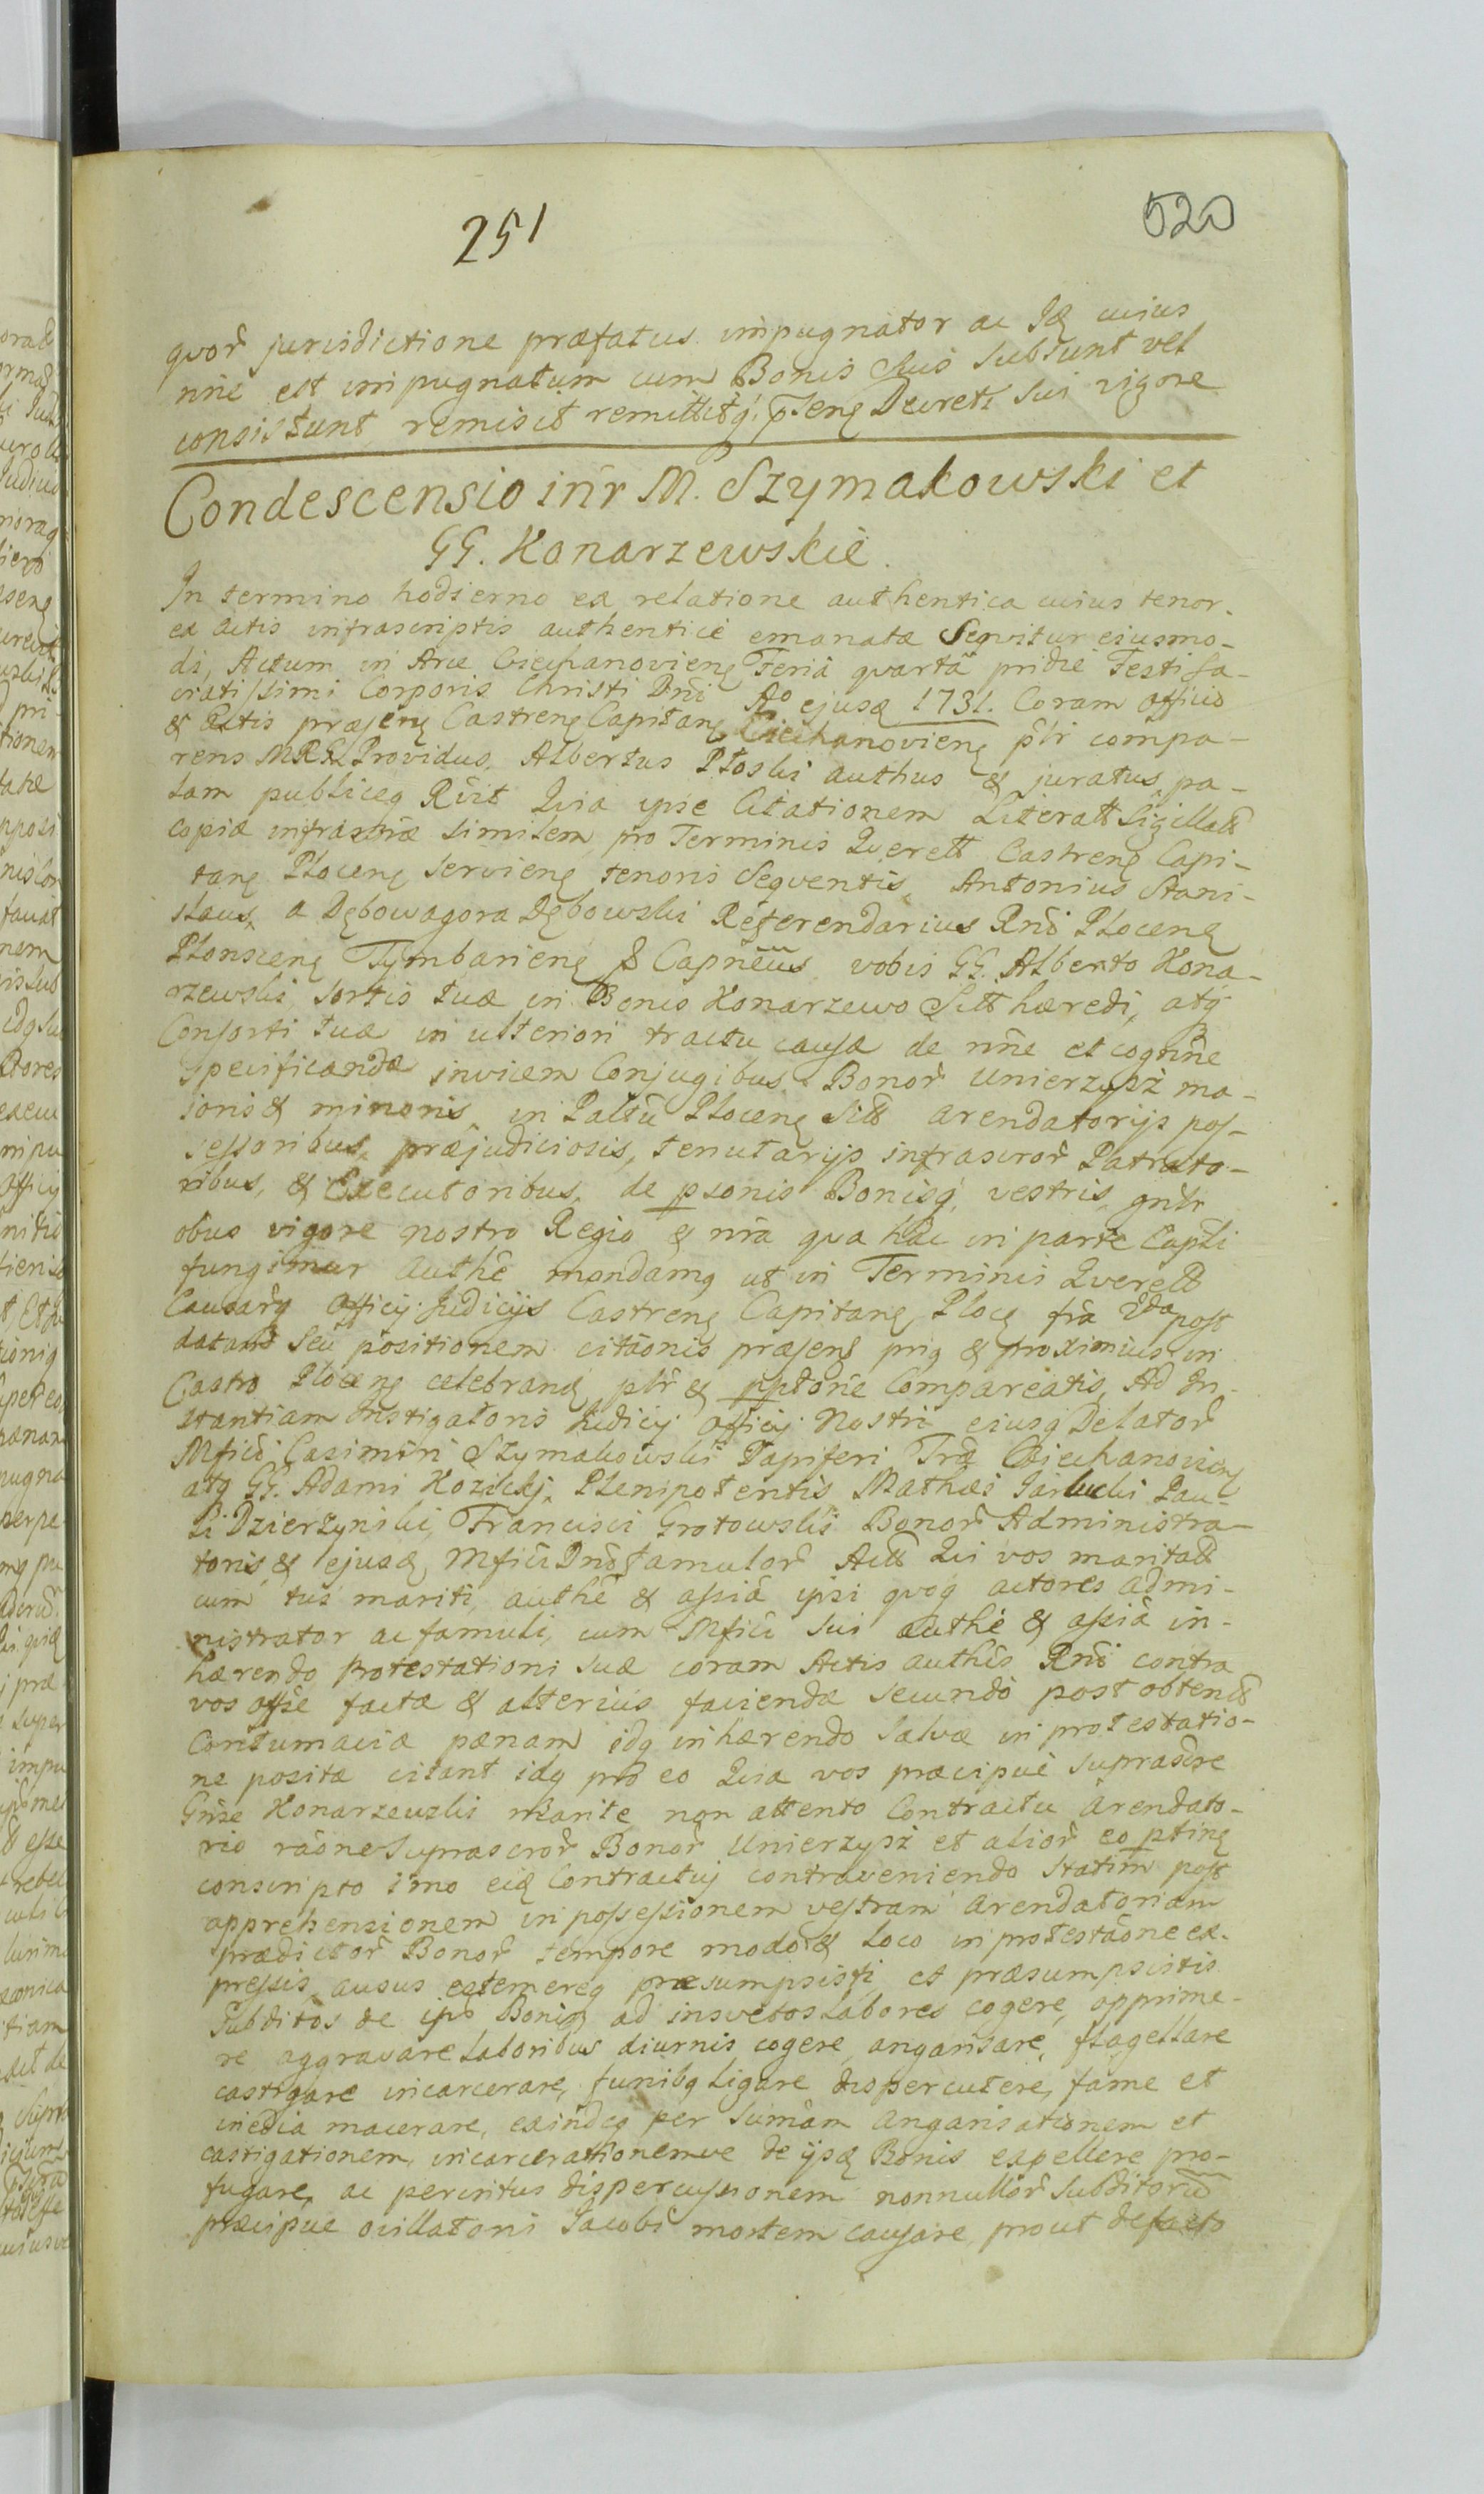 251
520
quor̃ jurisdictione præfatus impugnator ac Is cuius
nñe est impugnatum cum Bonis suis subsunt vel
consistunt remisit remittitq́ Decreti sui vigore
Condescensio inr̃ M. Szymakowski et
GG. Konarzewskie.
In termino hodierno ex relatione authentica cuius tenor
ex actis infrascriptis authenticè emanatæ sequitur eiusmo-
di, Actum in Arce Ciechanovieng Feriâ quartâ pridie Festi Sa-
cratissimi Corporis Christi Dnĩ Aº ejusq 1731. Coram Officio
& Actis præseng Castreng Capitang Ciechanovieng pl̃r compa-
rens Providus Albertus Ploski authus & juratus, pa-
lam publiceq Rc̃it Quia ipse Citationem Literatt Sigillatt
copiæ infrascr̃æ similem pro Terminis Querell Castreng Capi-
tang Ploceng servieng tenoris sequentis, Antonius Stani-
slaus a Dębowagora Dębowski Referendarius Rnĩ Ploceng
Plonsceng Tymbarieng & Capnẽus vobis GG. Alberto Kona-
rzewski sortis tuæ in Bonis Konarzewo Sitt hæredi, atq́
Consorti tuæ in ulteriori tractu causæ de nñe et cognñe
specificandæ invicem Conjugibus Bonor̃ Unierzysż ma-
ioris & minoris in Paltũ Ploceng Sitt arendatorijs pos-
sessoribus, præjudiciosis, tenutarijs infrascror̃ Patrato-
ribus, & Executoribus, de psonis Bonisq́ vestris gnlr
obus vigore nostro Regio & nr̃a qua hac in parte Capli
fungimur authẽ mandamq ut in Terminis Querell
Causarq Officij Judicij Castreng Capitang Ploc fr̃a 2da post
datam seu positionem citãonis præseng priq & proximius in
Castro Ploceng celebrand pl̃r & pptorie Compareatis, Ad In-
stantiam Instigatoris Judicij Officij Nostri ejusq́ Delator̃
Mfici Casimiri Szymakowski Dapiferi Tr̃æ Ciechanovieng
atq GG. Adami Kozicki, Plenipotentis Mathæi Pau-
li Dzierżynski, Francisci Grotowski Bonor̃ Administra-
toris, & ejusq Mfici Dnĩ Famulor̃ Actt Qui vos maritatt
cum tui mariti, authẽ & assiã ipsi quoq́ actores admi-
nistrator ac famuli, cum Mfici sui authẽ & assiã in-
hærendo protestationi suæ coram Actis authĩs Rnĩ contra
vos offse factæ & alterius faciendæ secundò post obtent
Contumaciæ pœnam idq inhærendo salvæ in protestatio-
ne positæ citant idq pro eo Quia vos præcipuè suprascr̃e
Gñse Konarzewski Marite non attento Contractu Arendato-
rio rãone suprascror̃ Bonor̃ Unierzysż et alior̃ eo pting
conscripto imo eiq Contractuj contraveniendo statim post
apprehensionem in possessionem vestram Arendatoriam
prædictor̃ Bonor̃ tempore modo & loco in protestãone ex-
pressis, ausus es temereq præsumpsisti et præsumpsistis
Subditos de ijsd Bonis ad insvetos labores cogere, opprime-
re aggravare laboribus diurnis cogere, angarisare, flagellare
castigare incarcerare, funibq ligare dispercutere, fame et
inedia macerare, exindeq per summam angarisationem et
castigationem, incarcerationemve de ijsq Bonis expellere pro-
fugare, ac penitus dispercussionem nonnullor̃ Subditorũ
præcipue ovillatoni Jacobi mortem causare, prout defacto